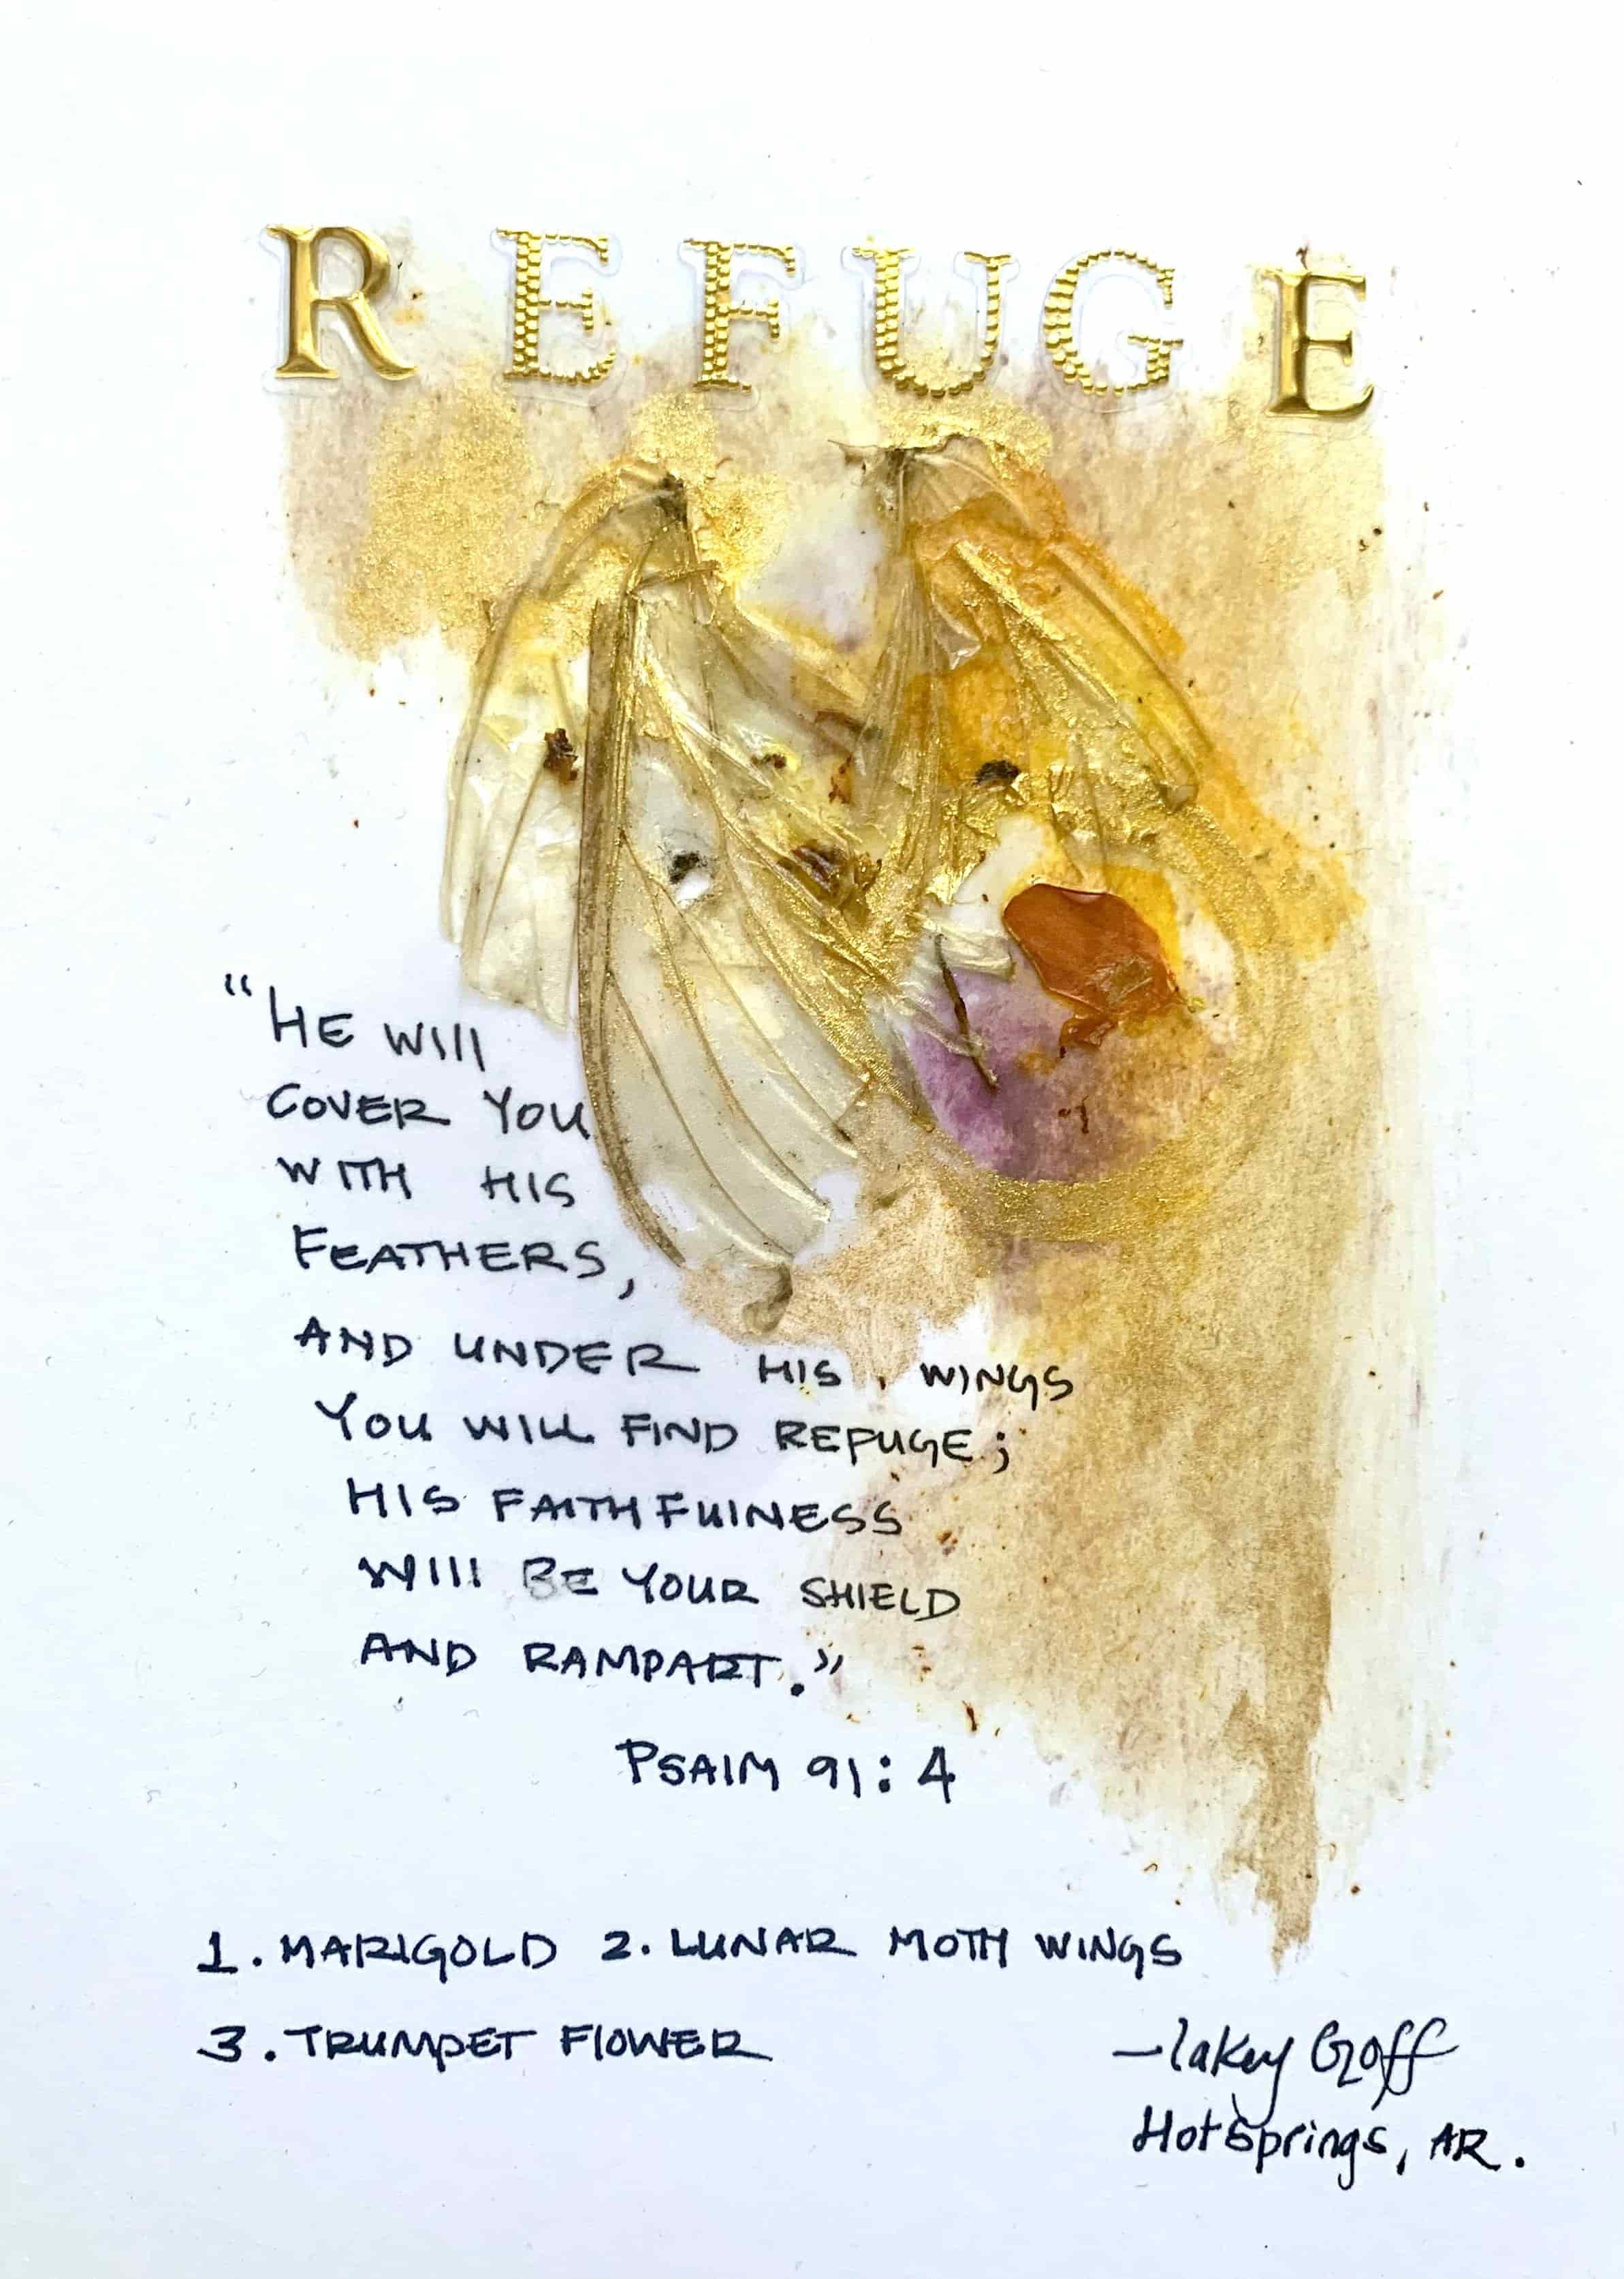 REFUGE
"HE WILL
COVER YOU
WITH HIS
FEATHERS,
AND UNDER HIS WINGS
YOU WILL FIND REFUGE;
HIS FAITHFULNESS
WILL BE YOUR SHIELD
AND RAMPART."
PSALM 91:4
1. MARIGOLD 2. LUNAR MOTH WINGS
3. TRUMPET FLOWER
—Lakey Goff
Hot Springs, AR.